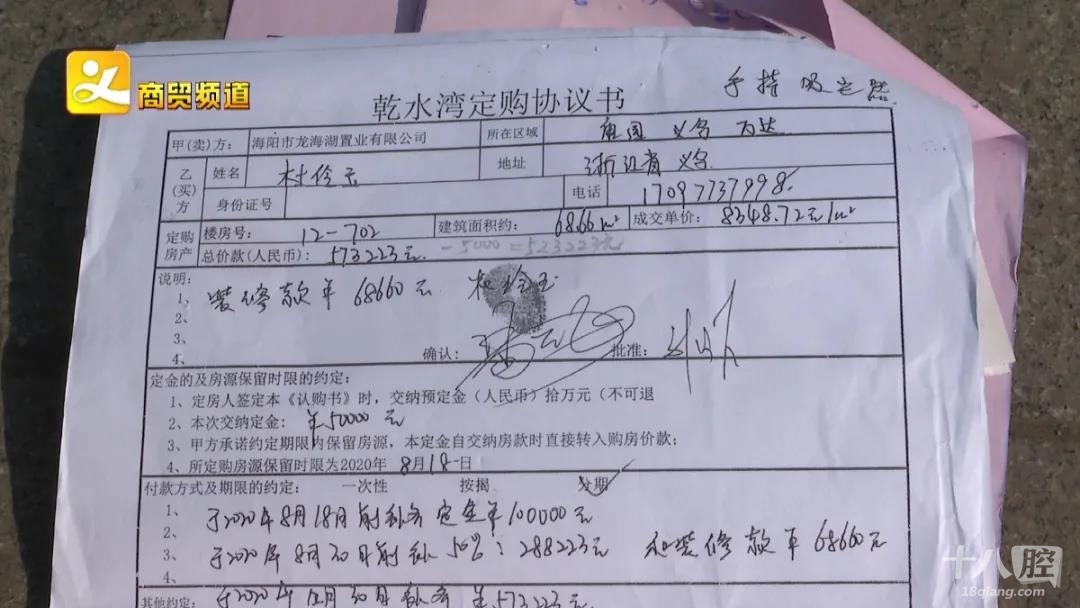 商贸频道
乾水湾定购协议书
甲(卖)方: 海阳市龙海湖置业有限公司 所在区域 义乌 万达
乙(买)方 姓名 地址 浙江省 义乌
身份证号 电话 17097737998
定购房产 楼房号: 12-702 建筑面积约: 68.66m² 成交单价: 8348.72元/m²
总价款(人民币): 573223元 -50000=523223元
说明:
1、装修款¥68660元
2、
3、
4、
确认: 批准:
定金的及房源保留时限的约定:
1、定房人签定本《认购书》时,交纳预定金(人民币)拾万元(不可退
2、本次交纳定金: ¥50000元
3、甲方承诺约定期限内保留房源,本定金自交纳房款时直接转入购房价款;
4、所定购房源保留时限为2020年8月18日
付款方式及期限的约定: 一次性 按揭 分期✓
1、于2020年8月18日前补齐定金¥100000元
2、
3、于2020年8月30日前补50%:288223元 和装修款¥68660元
4、
其他约定: 于2020年 月30日 ¥573223元
十八腔
18qiang.com